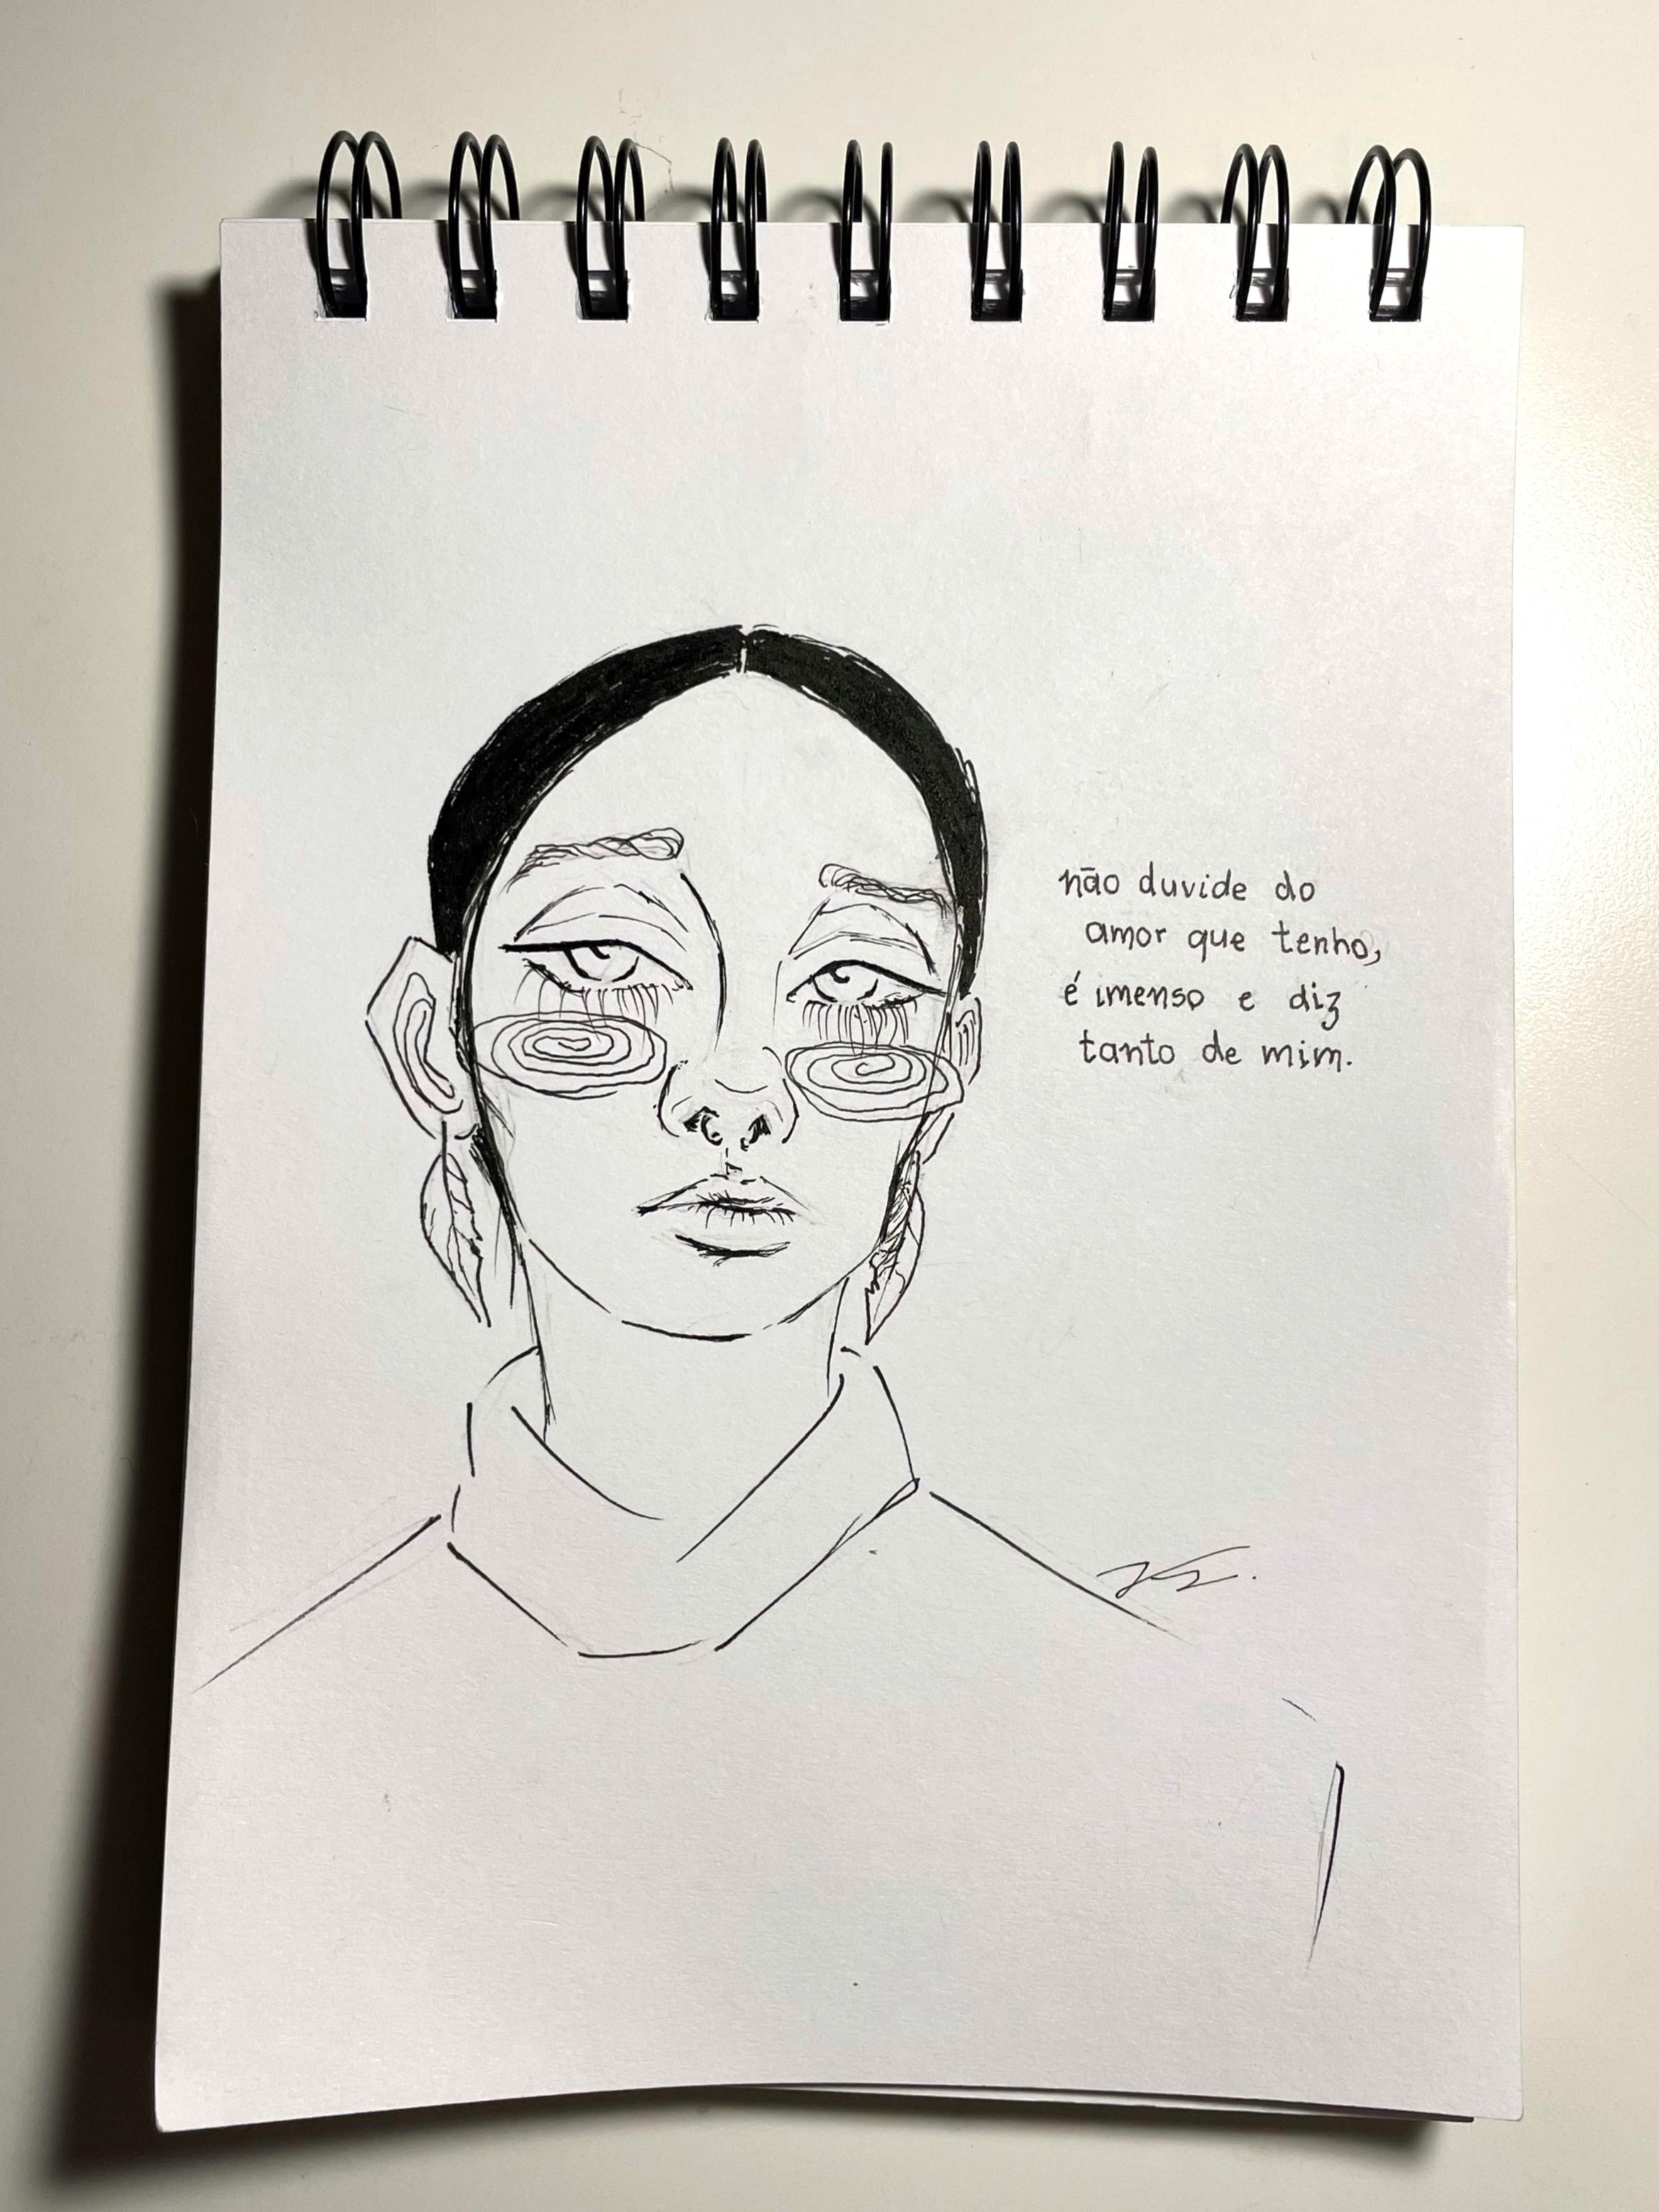 não duvide do
amor que tenho,
é imenso e diz
tanto de mim.